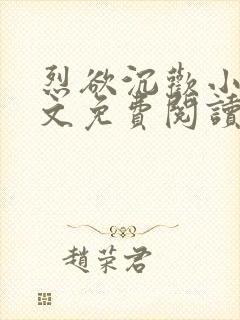 烈欲沉歡小
文免費閱讀
趙荣君